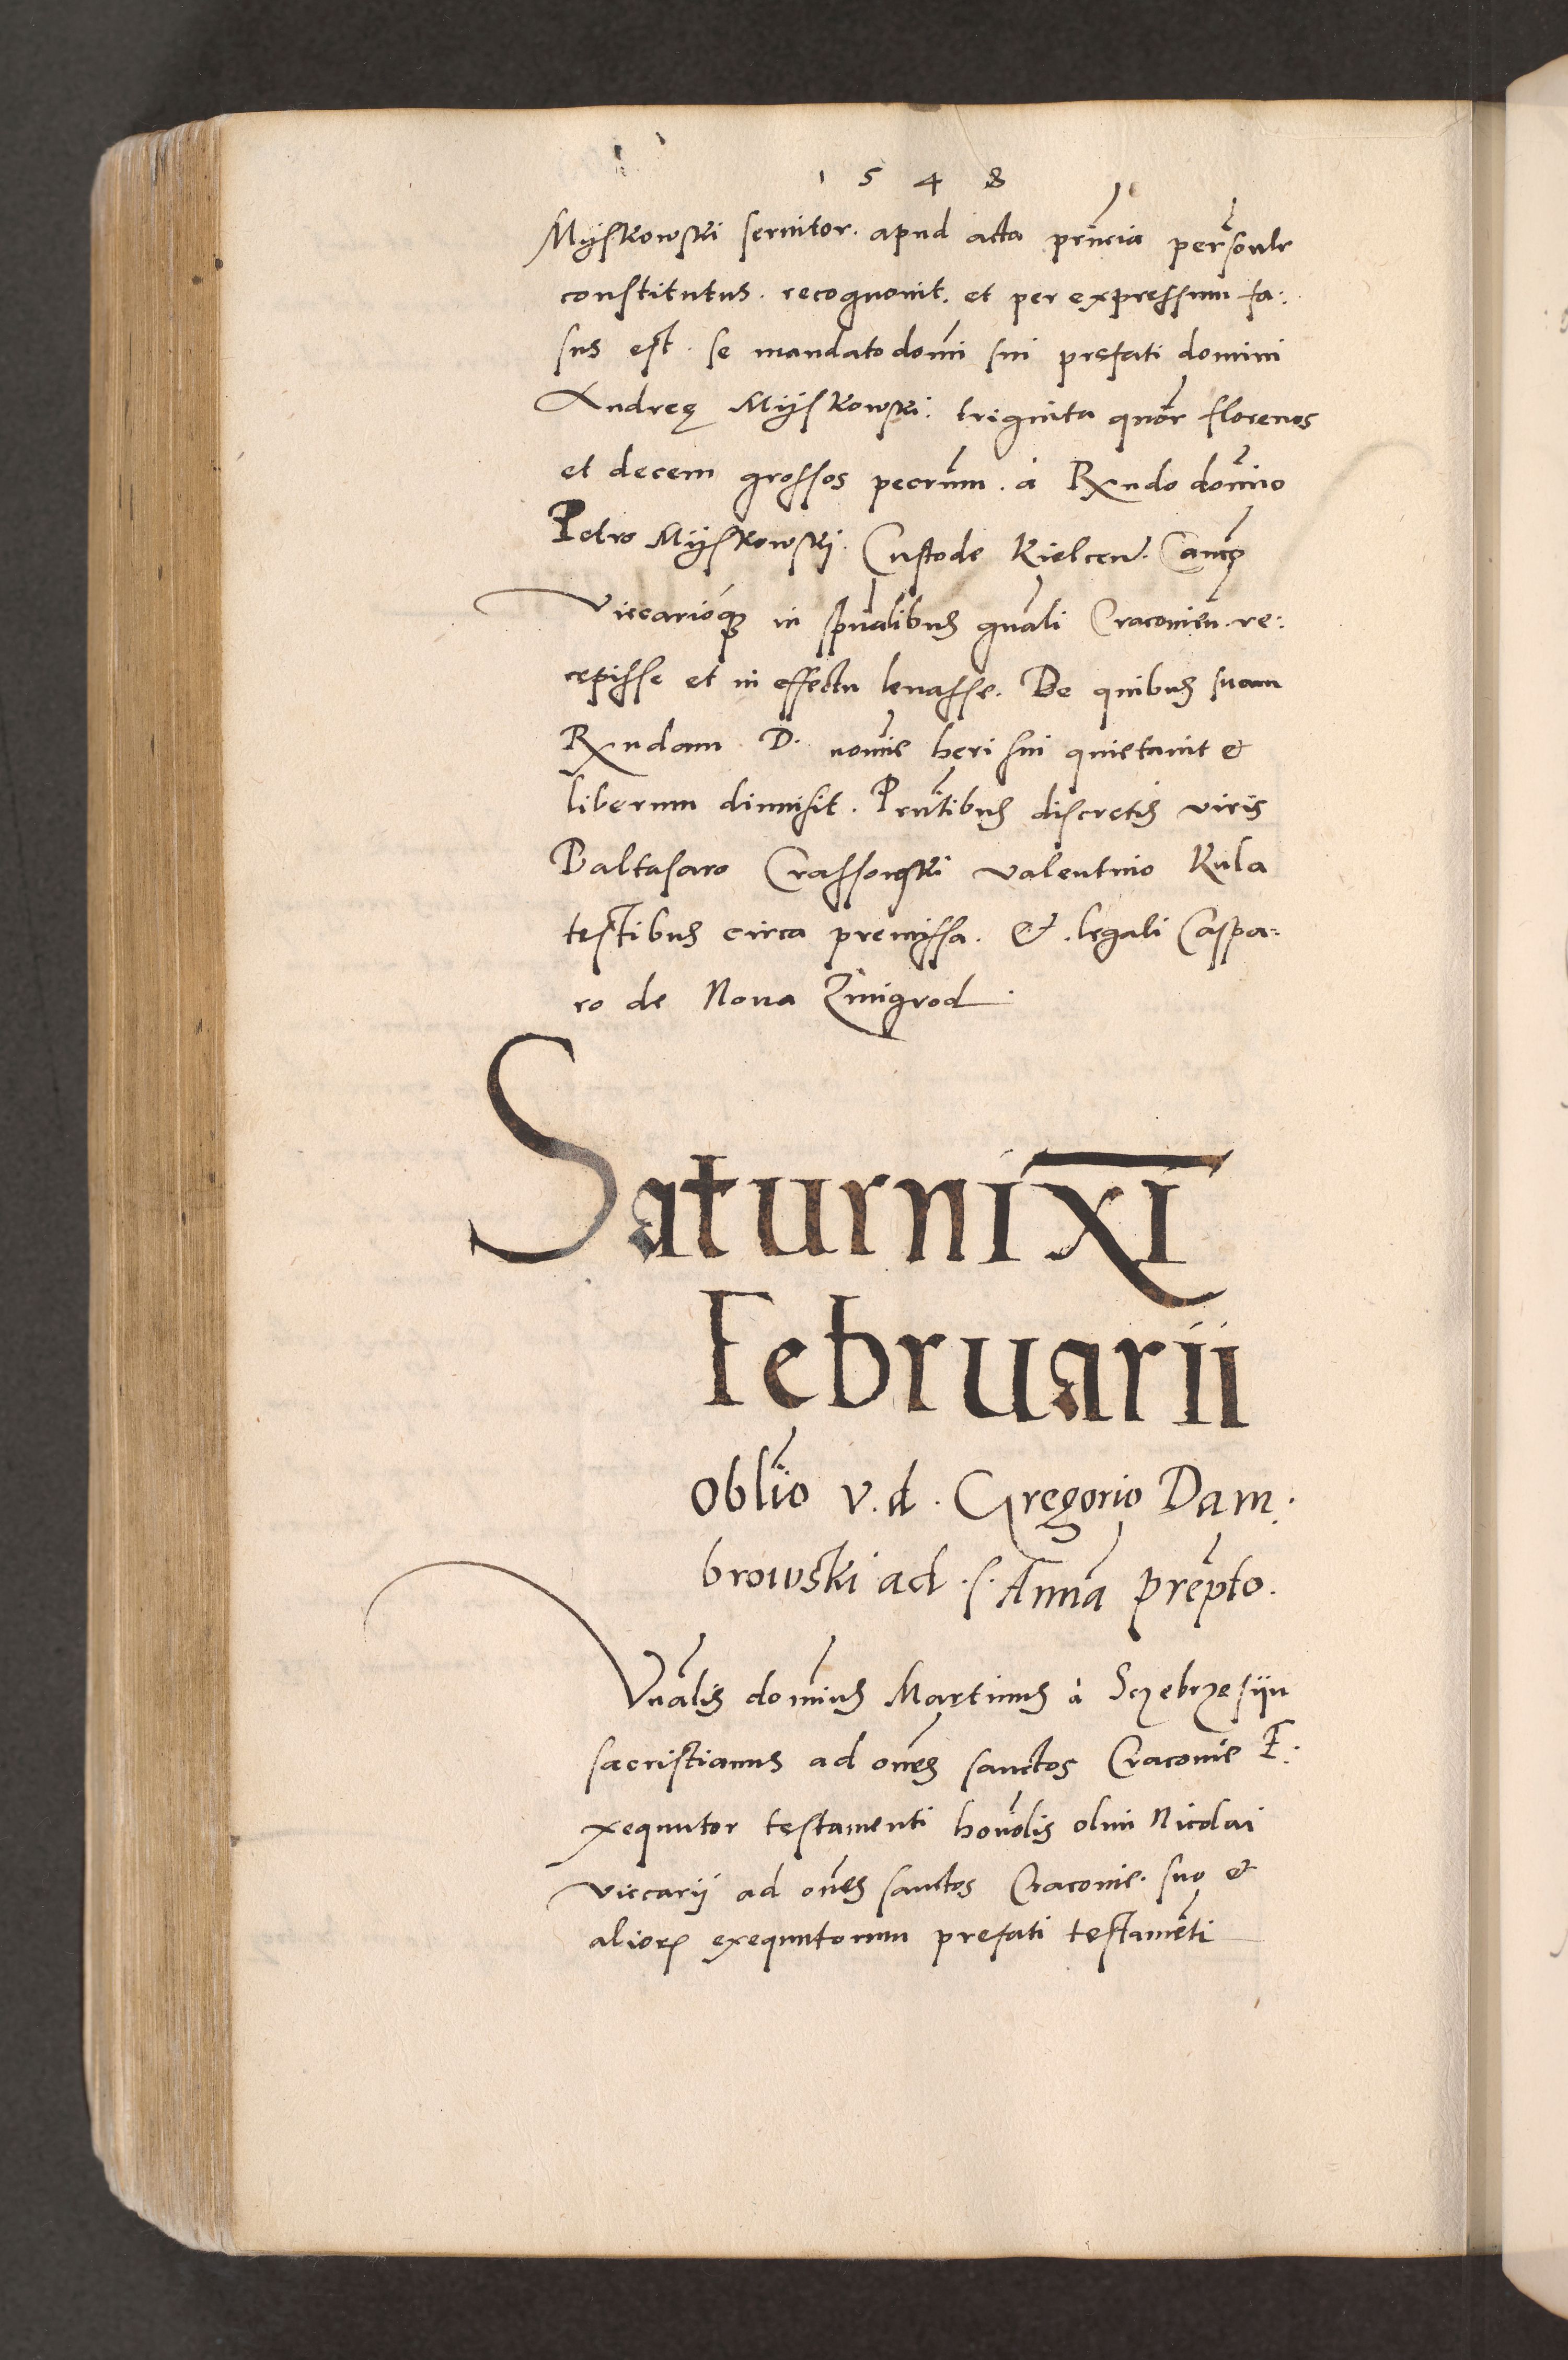 1548
Myskowski servitor. apud acta prncia personlr
constitutus. recognovit. et per expressum fa:
sus est. se mandato domi sui prefati domini
Andreę Myskowski. triginta quor florenos
et decem grossos pecrum. à Rxndo domino
Petro Myskowskj. Custode Kielcen. Canco
Viccarioq in spualibus gnali Cracovien. re:
cepisse et in effectu levasse. De quibus suam
Rxndam D. nomie heri sui quietavit et
liberum dimisit. Prntibus discretis viris
Baltasaro Crassowski Valentino Kula
testibus circa premissa. et. legali Caspa:
ro de Nova Zmigrod.
Saturni XI
Februarii
Oblio v. d. Gregorio Dam:
browski ad. s. Annã prepto.
Vnalis dominus Martinus à Sczebrzesijn
sacristianus ad ones sanctos Cracovie E:
xequutor testamenti honolis olim Nicolai
viccarij ad ones sanctos Cracovie. suo et
alior exequutorum prefati testamenti